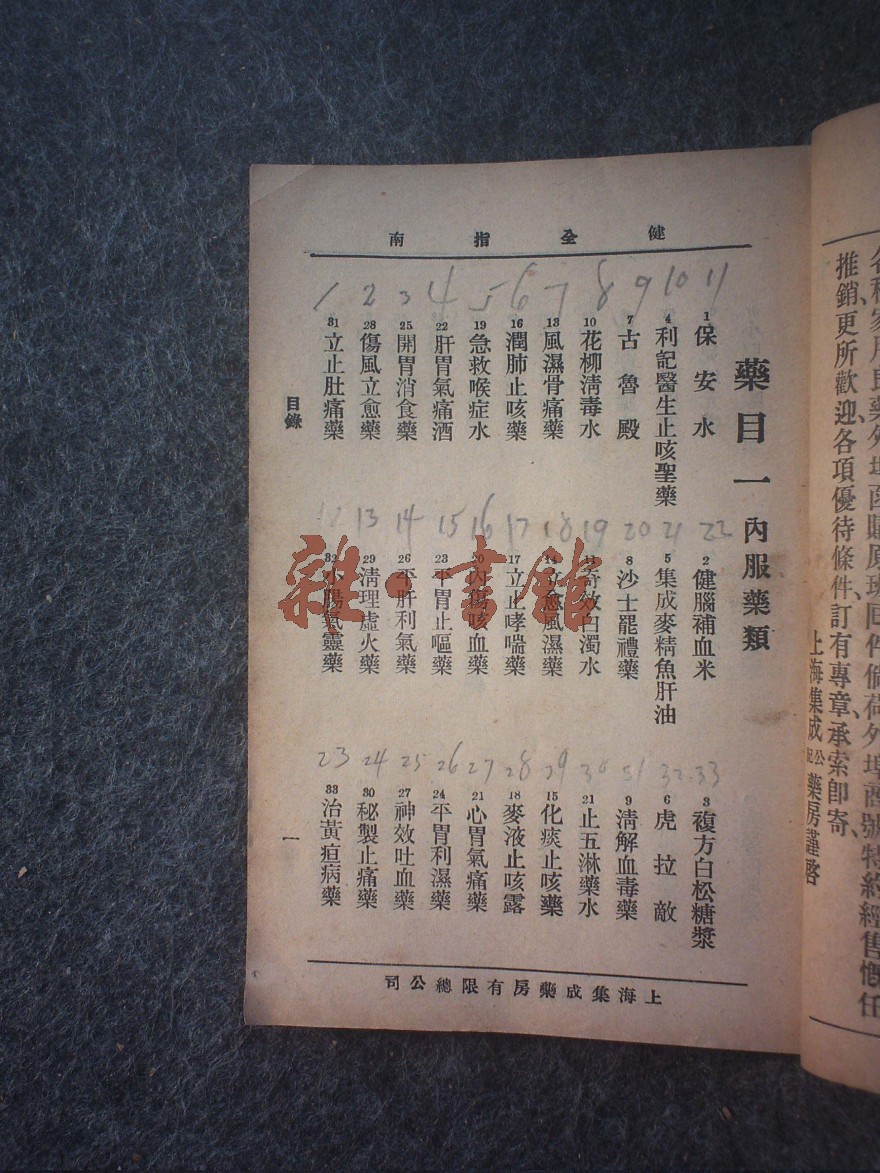 推銷、更所歡迎、各項優待條件、訂有專章、承索卽寄、
上海集成公記藥房謹啓
健全指南
1 2 3 4 5 6 7 8 9 10 11
藥目一 內服藥類
1 保安水
2 健腦補血米
3 複方白松糖漿
4 利記醫生止咳聖藥
5 集成麥精魚肝油
6 虎拉敵
7 古魯殿
8 沙士罷禮藥
9 淸解血毒藥
10 花柳淸毒水
11 奇效白濁水
21 止五淋藥水
13 風濕骨痛藥
14 立愈風濕藥
15 化痰止咳藥
16 潤肺止咳藥
17 立止哮喘藥
18 麥液止咳露
19 急救喉症水
20 內傷咳血藥
21 心胃氣痛藥
22 肝胃氣痛酒
23 平胃止嘔藥
24 平胃利濕藥
25 開胃消食藥
26 平肝利氣藥
27 神效吐血藥
28 傷風立愈藥
29 淸理虛火藥
30 秘製止痛藥
31 立止肚痛藥
32 小腸氣靈藥
33 治黃疸病藥
12 13 14 15 16 17 18 19 20 21 22
23 24 25 26 27 28 29 30 31 32 33
目錄
一
上海集成藥房有限總公司
雜·書館